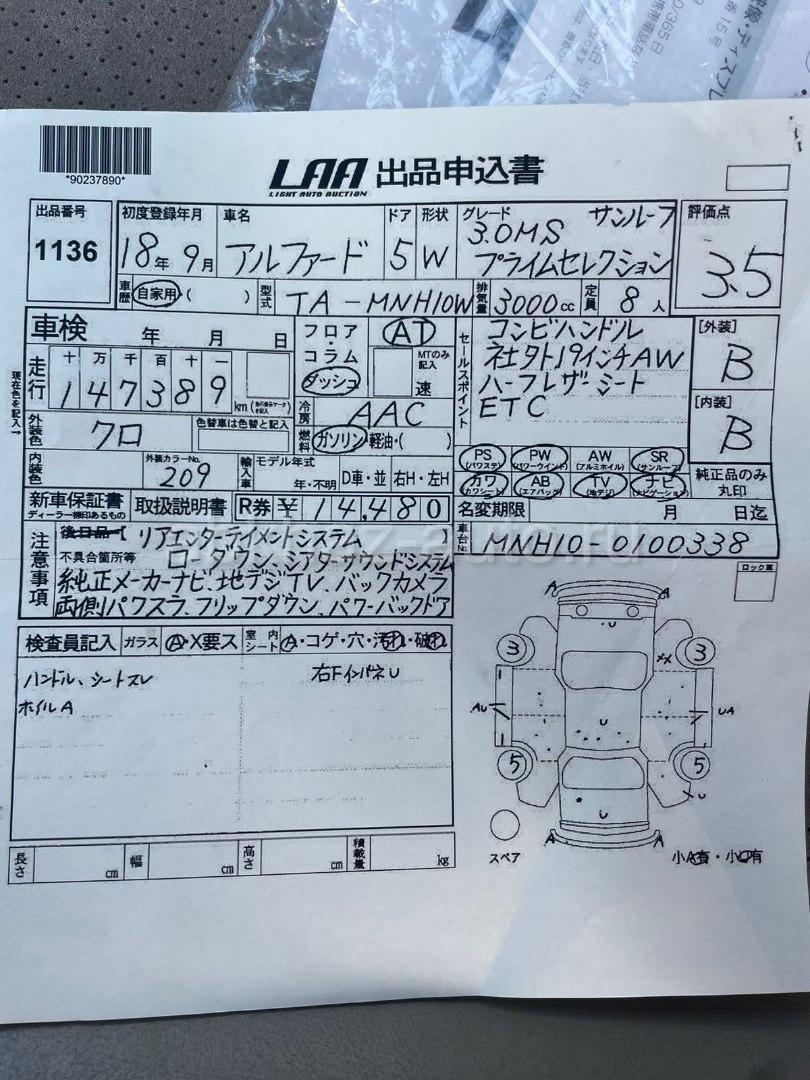 *90237890*
LAA 出品申込書
LIGHT AUTO AUCTION
出品番号
1136
初度登録年月
18年 9月
車名
アルファード
ドア
5
形状
W
グレード サンルーフ
3.0MS
プライムセレクション
評価点
3.5
車歴 自家用・( )
型式 TA-MNH10W
排気量 3000cc
定員 8人
車検 年 月 日
フロア・コラム ダッシュ
AT
MTのみ記入
速
セールスポイント
コンビハンドル
社外19インチAW
ハーフレザーシート
ETC
[外装]
B
[内装]
B
現在色を記入→
走行 十 万 千 百 十 一
147389 km
冷房 AAC
燃料 ガソリン・軽油・( )
外装色 クロ
色替車は色替と記入
内装色
外装カラーNo.
209
輸入車 モデル年式
年・不明 D車・並 右H・左H
PS (パワステ) PW (パワーウインド) AW (アルミホイル) SR (サンルーフ)
カワ (カワシート) AB (エアバック) TV (地デジ) ナビ (ナビゲーション)
純正品のみ丸印
新車保証書
ディーラー捺印あるもの
取扱説明書
R券 ¥14,480
名変期限 月 日迄
車台No. MNH10-0100338
注意事項
後日品 [リアエンターテイメントシステム]
不具合箇所等 ローダウン、シアターサウンドシステム
純正メーカーナビ、地デジTV、バックカメラ
両側パワスラ、フリップダウン、パワーバックドア
ロック車
検査員記入 ガラス A・X要ス 室内シート A・コゲ・穴・汚れ・破れ
ハンドル、シートスレ
右FインパネU
ホイルA
A A
U
3 3
XX
AU UA
U
5 5
XU
U
A A
スペア
小A有・小U有
長さ cm 幅 cm 高さ cm 積載量 kg